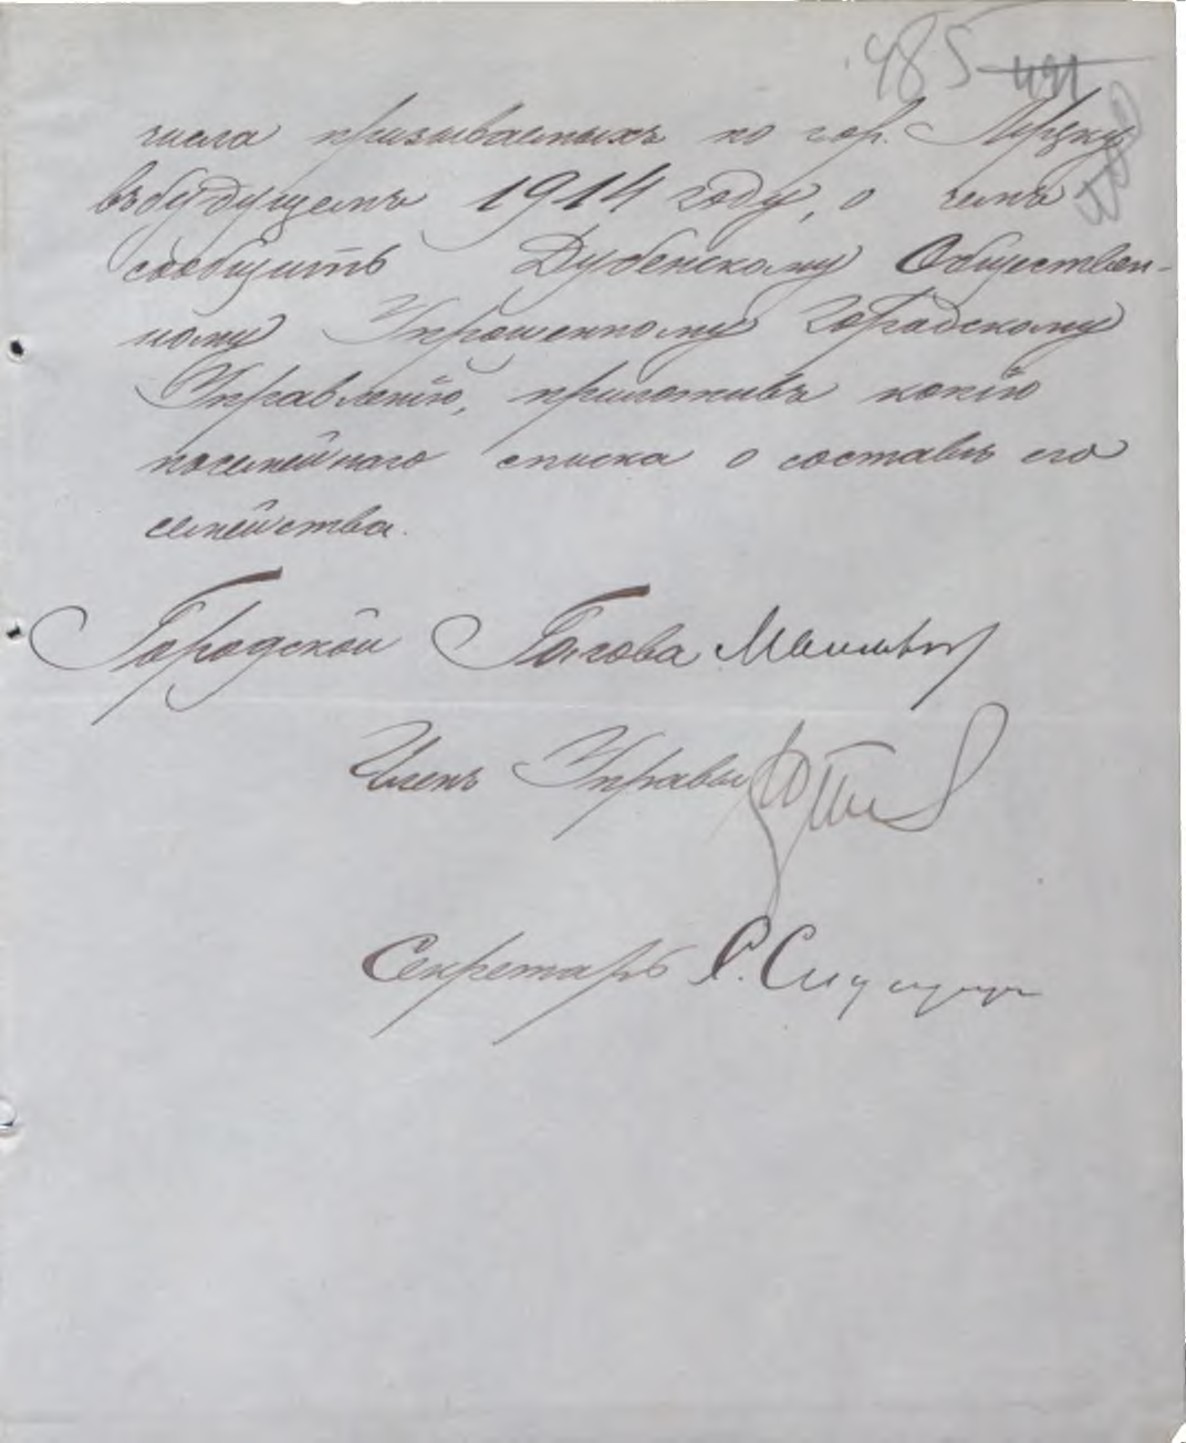 485
числа призываемыхъ по гор. Луцку
въ будущемъ 1914 году, о чемъ
сообщить Дубенскому Обществен-
ному Упрощенному Городскому
Управленію, приложивъ копію
посемейнаго списка о составѣ его
семейства.
Городской Голова
Членъ Управы
Секретарь С.